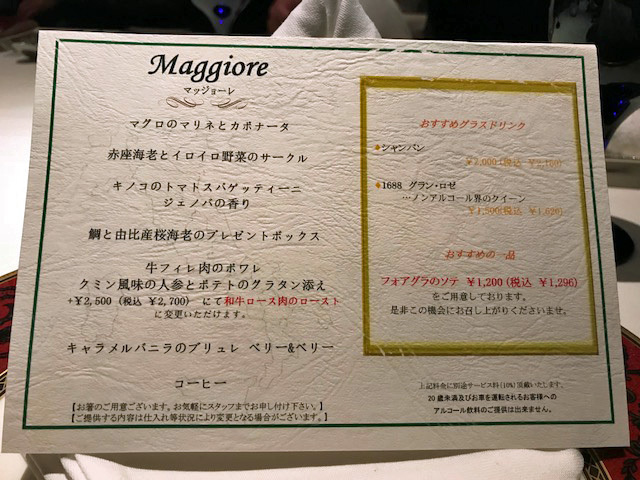 Maggiore
マッジョーレ
マグロのマリネとカポナータ
赤座海老とイロイロ野菜のサークル
キノコのトマトスパゲッティーニ
ジェノバの香り
鯛と由比産桜海老のプレゼントボックス
牛フィレ肉のポワレ
クミン風味の人参とポテトのグラタン添え
+¥2,500（税込 ¥2,700） にて和牛ロース肉のロースト
に変更いただけます。
キャラメルバニラのブリュレ ベリー&ベリー
コーヒー
【お箸のご用意ございます。お気軽にスタッフまでお申し付け下さい。】
【ご提供する内容は仕入れ等状況により変更となる場合がございます。】
おすすめグラスドリンク
◆シャンパン
¥2,000（税込 ¥2,160）
◆1688 グラン・ロゼ
…ノンアルコール界のクイーン
¥1,500（税込 ¥1,620）
おすすめの一品
フォアグラのソテ ¥1,200（税込 ¥1,296）
をご用意しております。
是非この機会にお召し上がりくださいませ。
上記料金に別途サービス料(10%)頂戴いたします。
20歳未満及びお車を運転されるお客様への
アルコール飲料のご提供は出来ません。